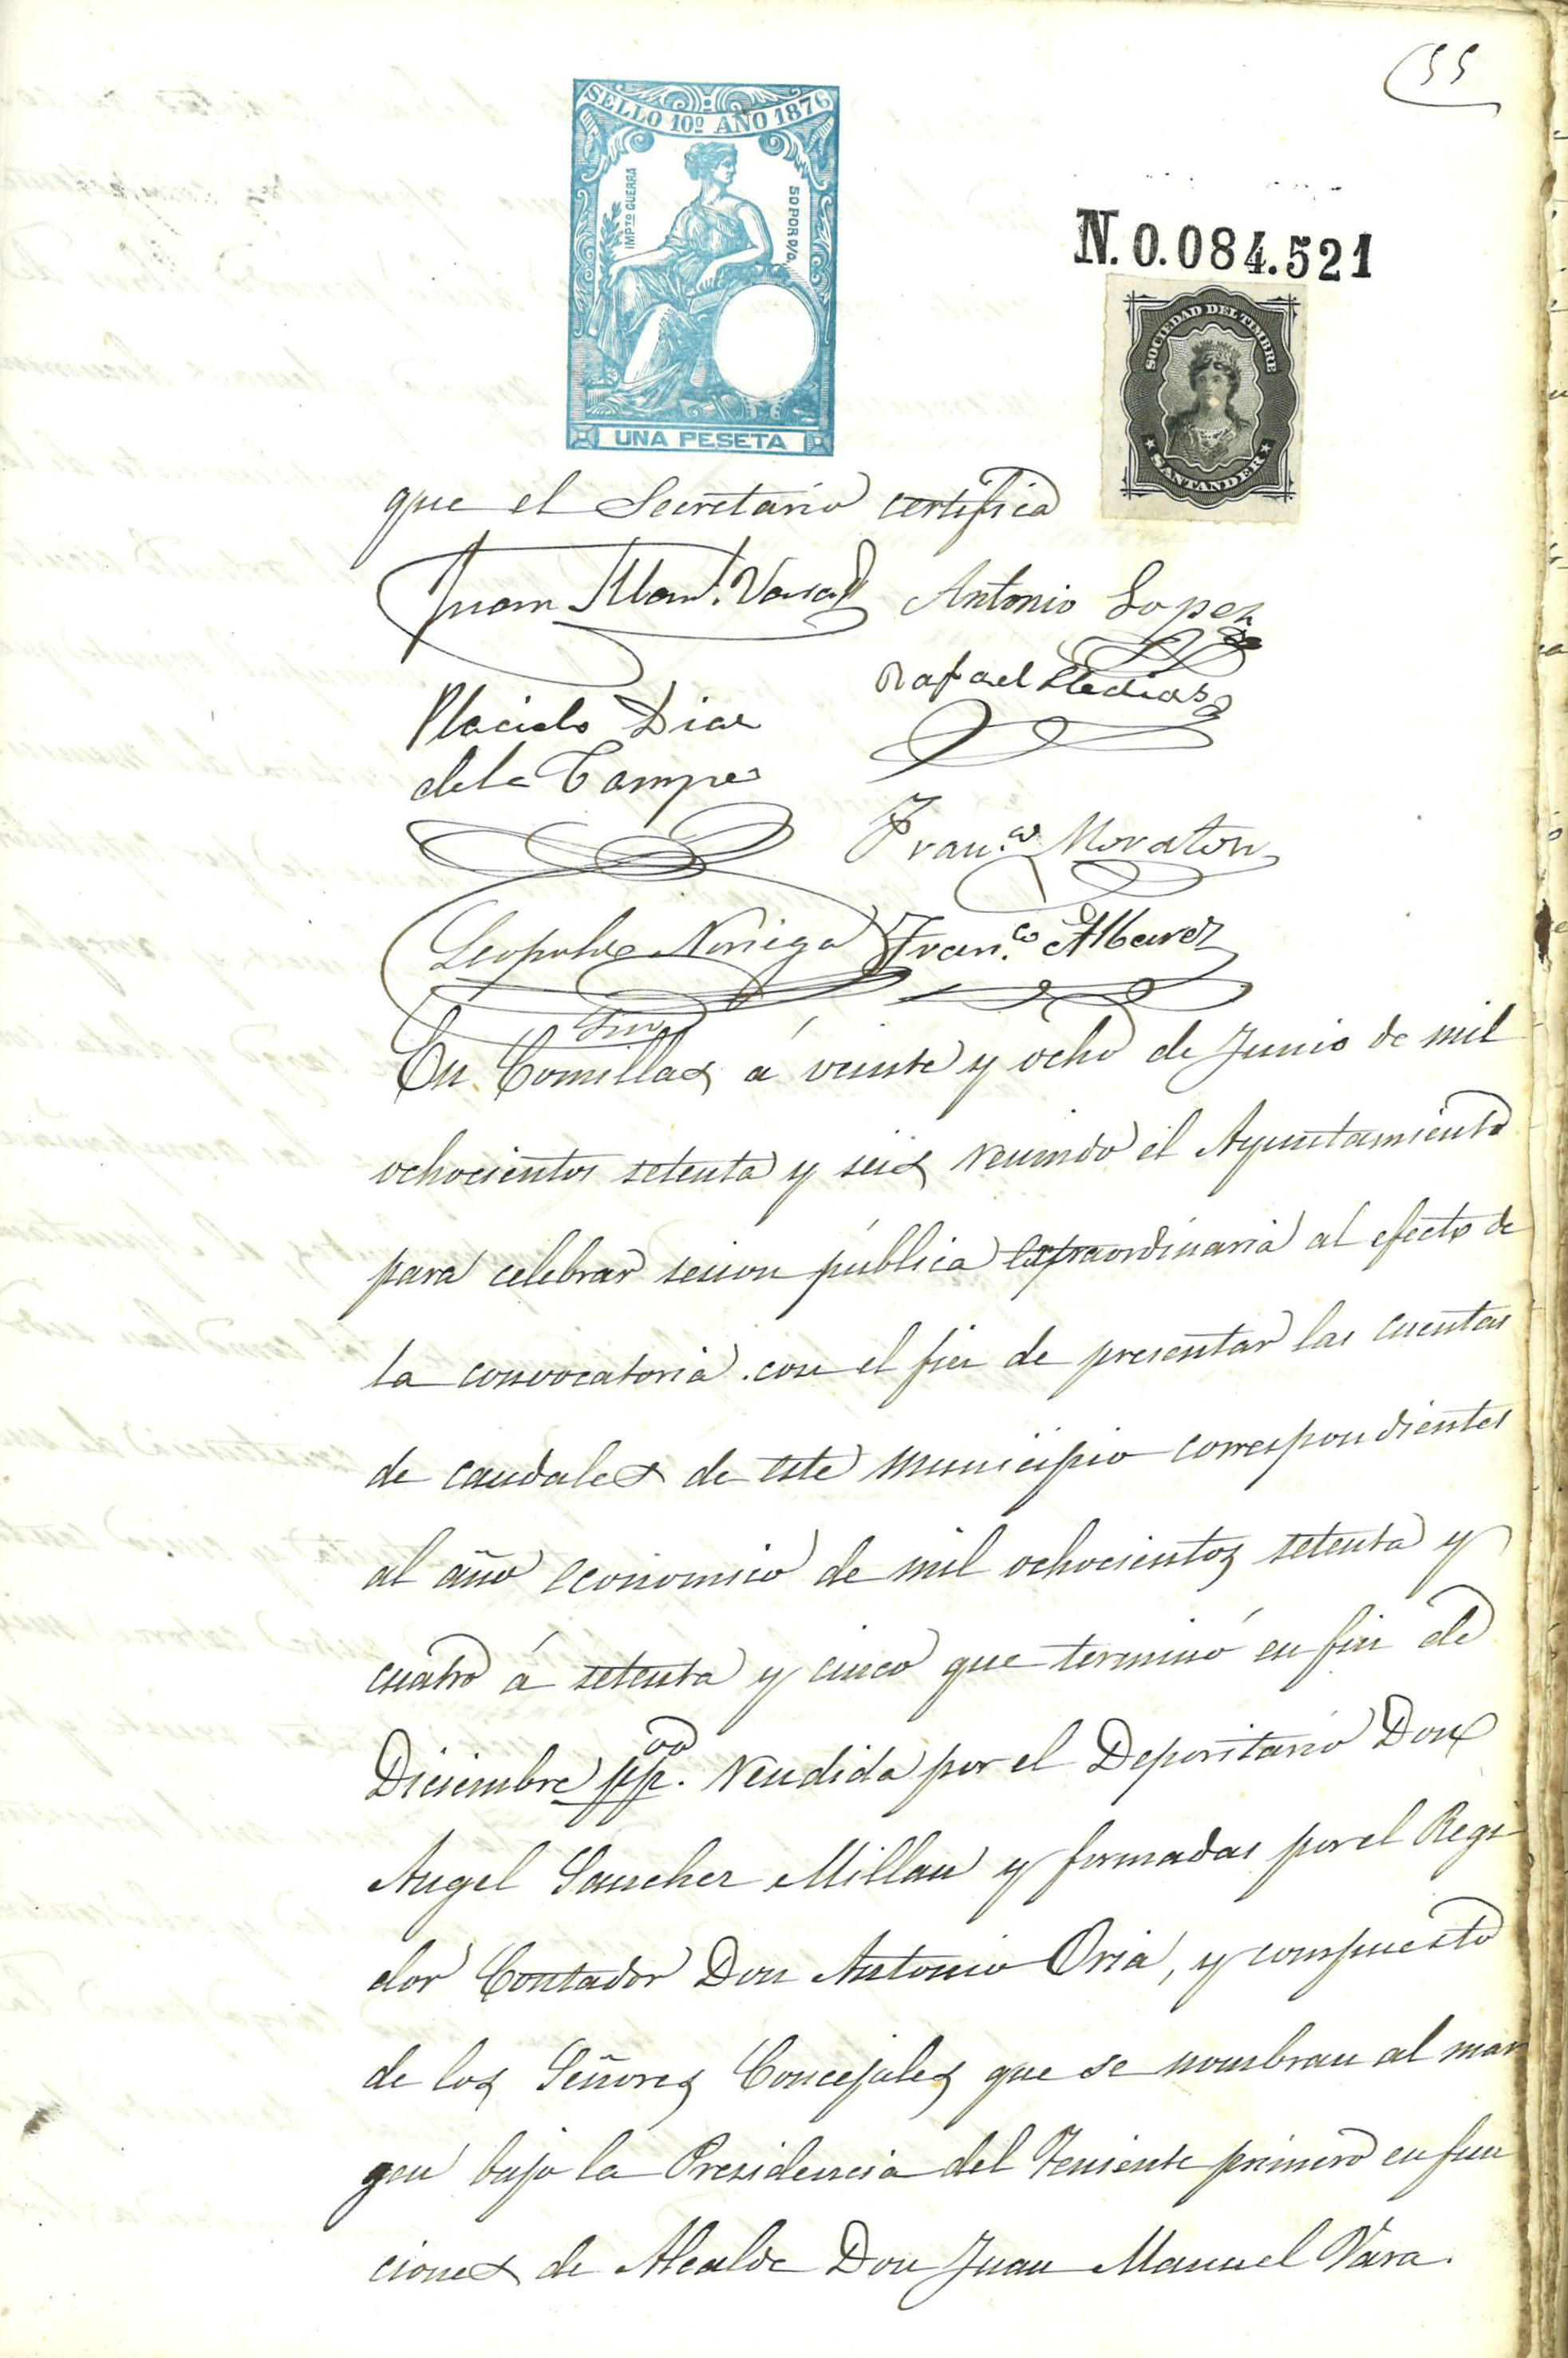 55
SELLO 10º AÑO 1876
IMPTO GUERRA
50 POR O/O
UNA PESETA
N. 0.084.521
SOCIEDAD DEL TIMBRE
SANTANDER
que el Secretario certifica
Juan Man.l Vara Antonio Lopez
Rafael
Placido Diaz
de la Campa
Fran.co Moraton
Leopoldo Noriega Fran.co Albarez
Srio
En Comillas á veinte y ocho de Junio de mil
ochocientos setenta y seis reunido el Ayuntamiento
para celebrar sesion pública extraordinaria al efecto de
la convocatoria con el fin de presentar las cuentas
de caudales de este municipio correspondientes
al año economico de mil ochocientos setenta y
cuatro á setenta y cinco que terminó en fin de
Diciembre ppdo. rendida por el Depositario Don
Angel Sanchez Millan y formadas por el Regi
dor Contador Don Antonio Oria, y compuesto
de los Señores Concejales que se nombran al mar
gen bajo la Presidencia del Teniente primero en fun
ciones de Alcalde Don Juan Manuel Vara.